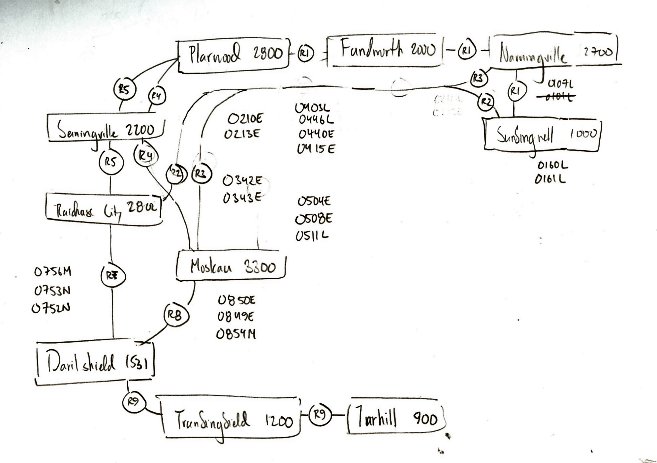 Plarwood 2800
R1
Fundmorth 2000
R1
Namingville 2700
R5
R4
R3
R1
0107L
0101L
R2
0210E
0213E
0403L
0446L
0440E
0415E
Semingville 2200
Sunsingwell 1000
R5
R4
R2
R3
0160L
0161L
0342E
0343E
City
0504E
0508E
0511L
Moskau 3300
0756M
0753N
0752N
R8
0850E
0849E
0854M
Darilshield 1531
R9
1200
R9
900